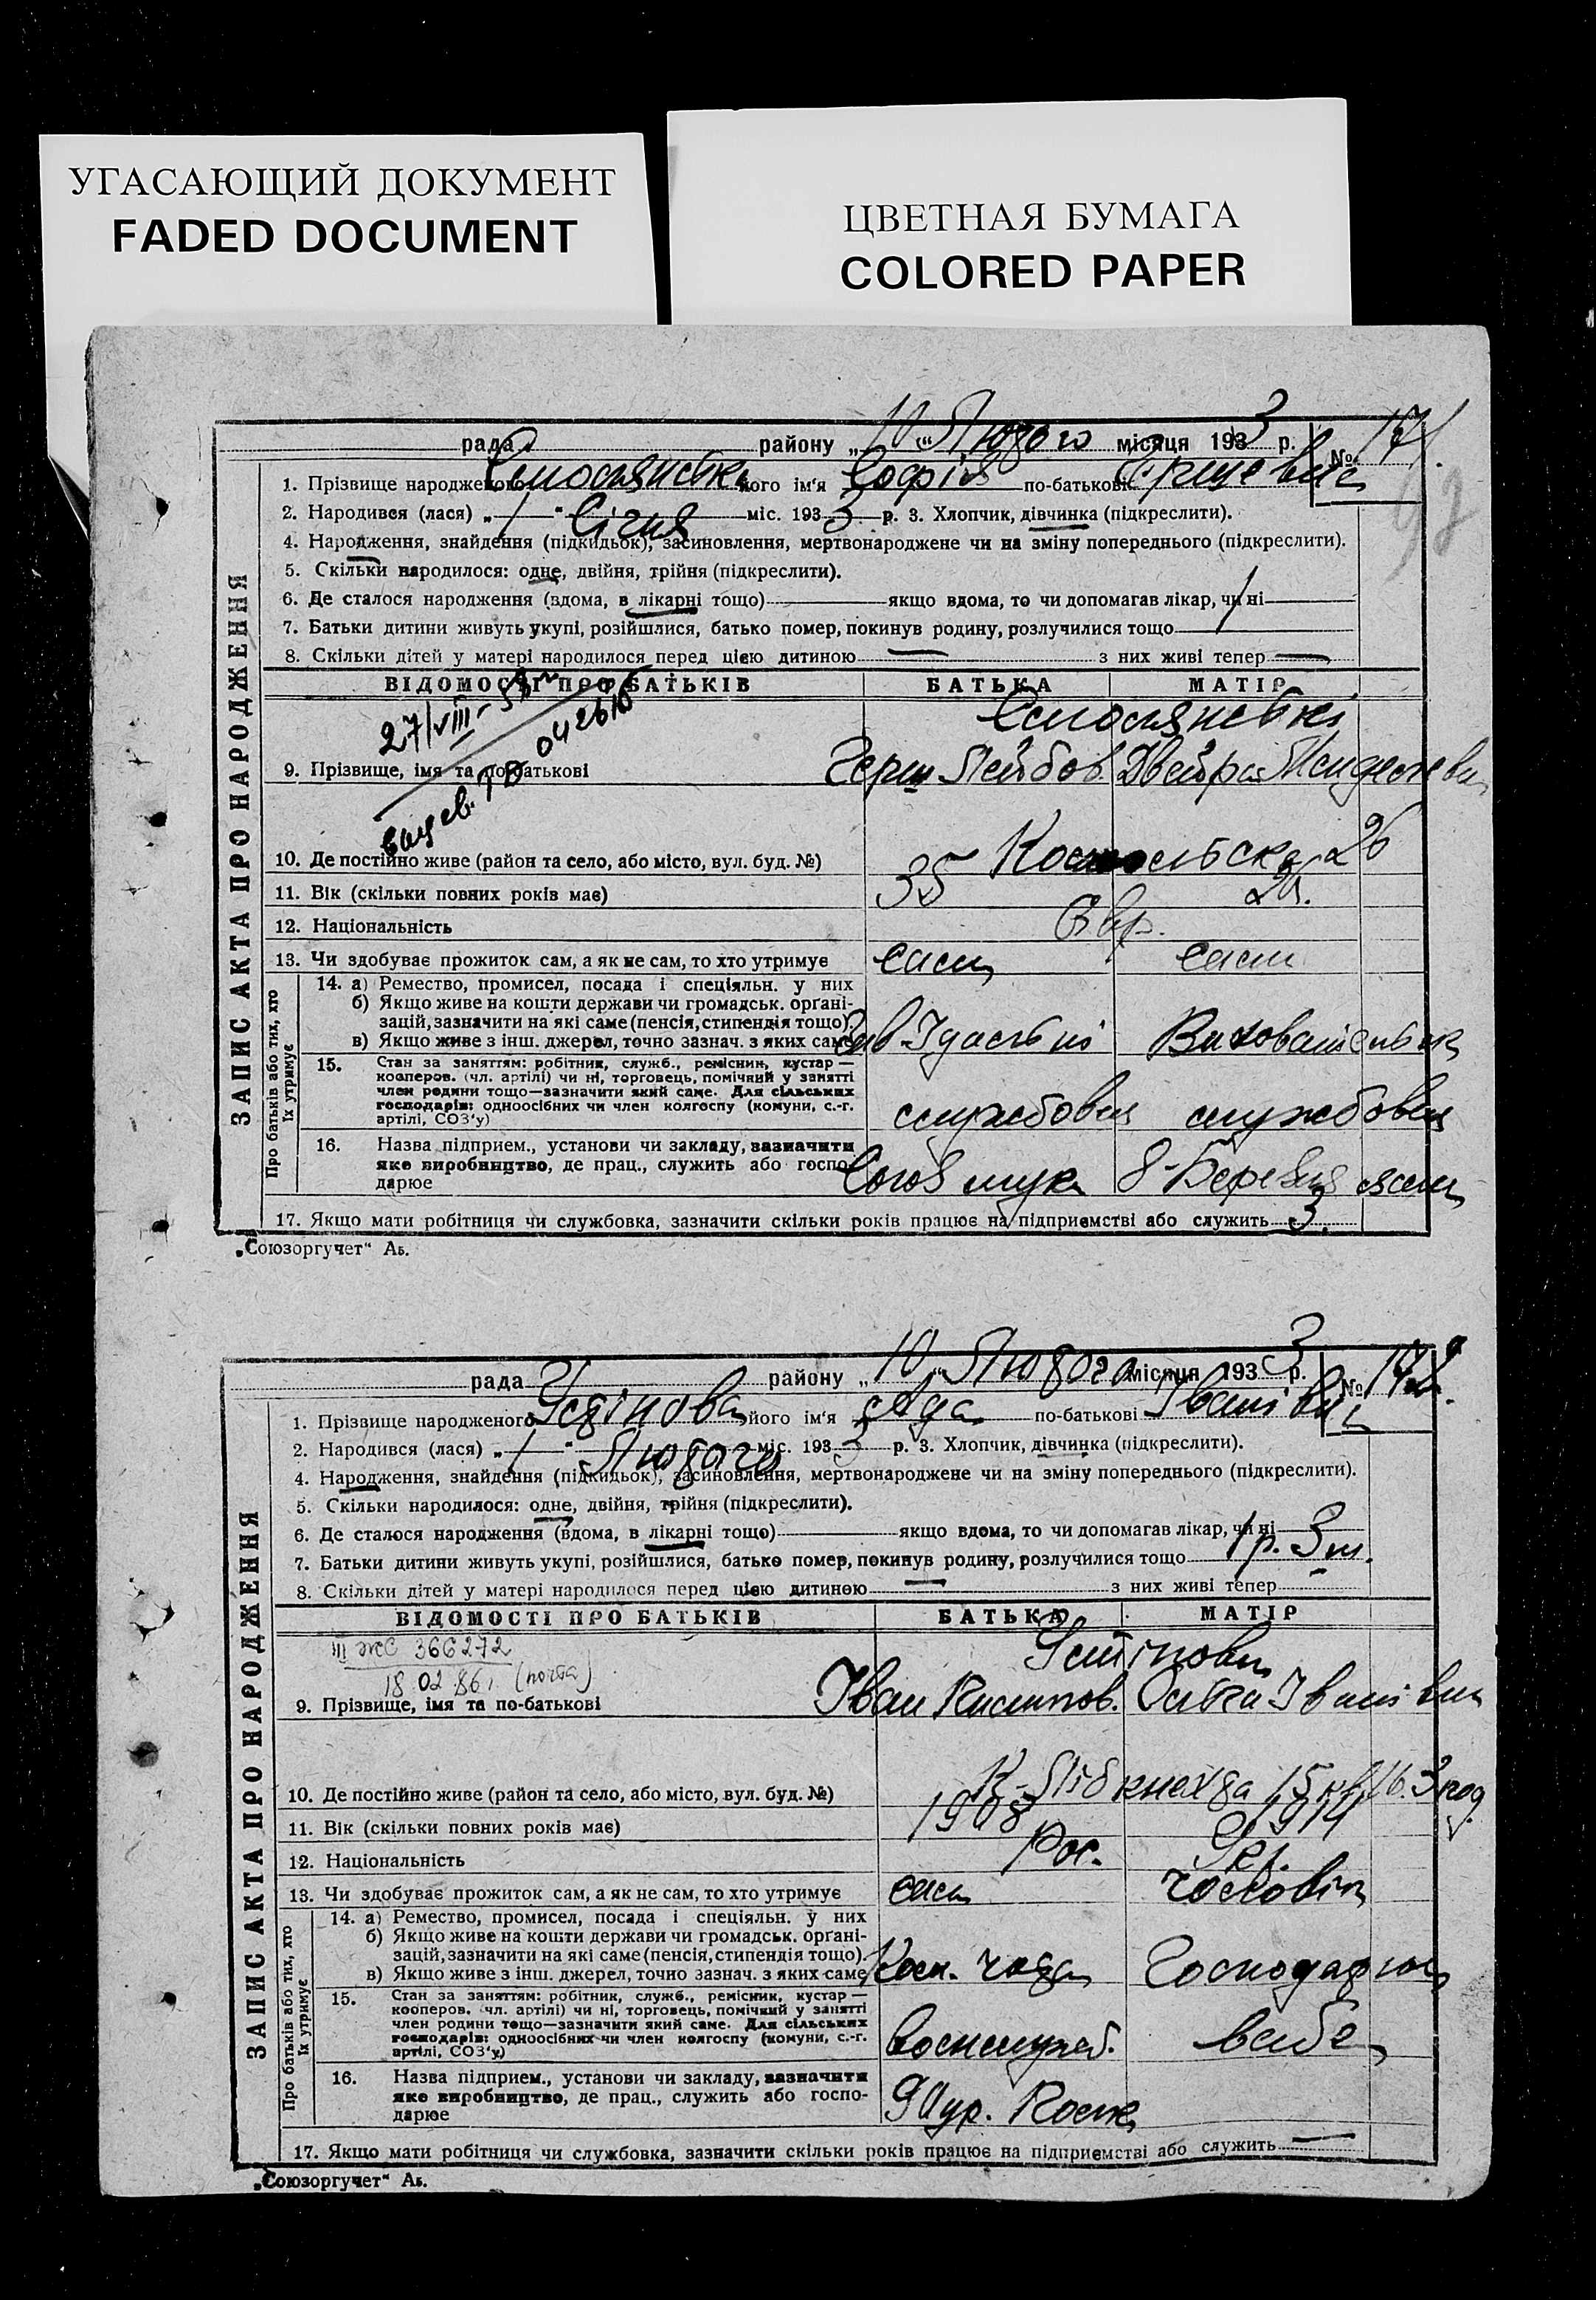 УГАСАЮЩИЙ ДОКУМЕНТ
FADED DOCUMENT
ЦВЕТНАЯ БУМАГА
COLORED PAPER
рада району „10“ Лютого місяця 1933 р. № 171.
ЗАПИС АКТА ПРО НАРОДЖЕННЯ
1. Прізвище народженого Смолянська його ім'я Софія по-батькові
2. Народився (лася) „1“ Січня міс. 1933 р. 3. Хлопчик, дівчинка (підкреслити).
4. Народження, знайдення (підкидьок), засиновлення, мертвонароджене чи на зміну попереднього (підкреслити).
5. Скільки народилося: одне, двійня, трійня (підкреслити).
6. Де сталося народження (вдома, в лікарні тощо) якщо вдома, то чи допомагав лікар, чи ні
7. Батьки дитини живуть укупі, розійшлися, батько помер, покинув родину, розлучилися тощо 1
8. Скільки дітей у матері народилося перед цією дитиною — з них живі тепер —
ВІДОМОСТІ ПРО БАТЬКІВ БАТЬКА МАТІР
27/VIII-
Смолянські
9. Прізвище, імя та по-батькові Герш Лейбов. Двейра
10. Де постійно живе (район та село, або місто, вул. буд. №) 26
11. Вік (скільки повних років має) 35
12. Національність Євр.
13. Чи здобуває прожиток сам, а як не сам, то хто утримує сам сама
Про батьків або тих, хто їх утримує
14. а) Ремество, промисел, посада і спеціяльн. у них
б) Якщо живе на кошти держави чи громадськ. органі-
зацій, зазначити на які саме (пенсія, стипендія тощо).
в) Якщо живе з інш. джерел, точно зазнач. з яких саме Зав Їдальні Вихователька
15. Стан за заняттям: робітник, служб., ремісник, кустар —
кооперов. (чл. артілі) чи ні, торговець, помічний у занятті
член родини тощо—зазначити який саме. Для сільських
господарів: одноосібних чи член колгоспу (комуни, с.-г.
артілі, СОЗ'у) службовец службовец
16. Назва підприєм., установи чи закладу, зазначити
яке виробництво, де прац., служить або госпо-
дарює Союз мука 8-Березня ясли
17. Якщо мати робітниця чи службовка, зазначити скільки років працює на підприємстві або служить 3.
„Союзоргучет“ Аь.
рада району „10“ Лютого місяця 1933 р. № 172.
ЗАПИС АКТА ПРО НАРОДЖЕННЯ
1. Прізвище народженого Устінова його ім'я Ада по-батькові Іванівна
2. Народився (лася) „1“ Лютого міс. 1933 р. 3. Хлопчик, дівчинка (підкреслити).
4. Народження, знайдення (підкидьок), засиновлення, мертвонароджене чи на зміну попереднього (підкреслити).
5. Скільки народилося: одне, двійня, трійня (підкреслити).
6. Де сталося народження (вдома, в лікарні тощо) якщо вдома, то чи допомагав лікар, чи ні
7. Батьки дитини живуть укупі, розійшлися, батько помер, покинув родину, розлучилися тощо 1 р. 3 м.
8. Скільки дітей у матері народилося перед цією дитиною — з них живі тепер
ВІДОМОСТІ ПРО БАТЬКІВ БАТЬКА МАТІР
III ЖС 366272
18 02 86, (почта)
Устінови
9. Прізвище, імя та по-батькові Іван Ольга Іванівна
10. Де постійно живе (район та село, або місто, вул. буд. №) К-Лібкнехда 15 кв 16.
11. Вік (скільки повних років має) 1908 1914
12. Національність Рос. Укр.
13. Чи здобуває прожиток сам, а як не сам, то хто утримує сам чоловік
Про батьків або тих, хто їх утримує
14. а) Ремество, промисел, посада і спеціяльн. у них
б) Якщо живе на кошти держави чи громадськ. органі-
зацій, зазначити на які саме (пенсія, стипендія тощо).
в) Якщо живе з інш. джерел, точно зазнач. з яких саме Господарює
15. Стан за заняттям: робітник, служб., ремісник, кустар —
кооперов. (чл. артілі) чи ні, торговець, помічний у занятті
член родини тощо—зазначити який саме. Для сільських
господарів: одноосібних чи член колгоспу (комуни, с.-г.
артілі, СОЗ'у)
16. Назва підприєм., установи чи закладу, зазначити
яке виробництво, де прац., служить або госпо-
дарює
17. Якщо мати робітниця чи службовка, зазначити скільки років працює на підприємстві або служить —
„Союзоргучет“ Аь.